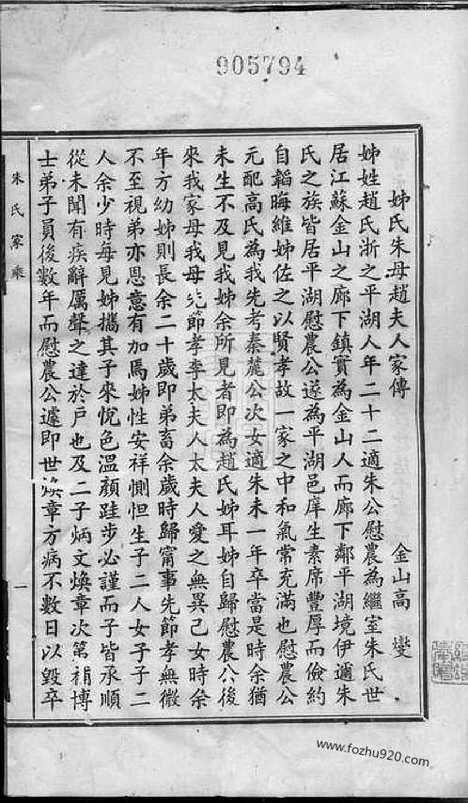 905794
姊氏朱母趙夫人家傳
金山高燮
姊姓趙氏浙之平湖人年二十二適朱公慰農為繼室朱氏世
居江蘇金山之廊下鎮實為金山人而廊下鄰平湖境伊邇朱
氏之族皆居平湖慰農公遂為平湖邑庠生素席豐厚而儉約
自韜晦維姊佐之以賢孝故一家之中和氣常充滿也慰農公
元配高氏為我先考秦麓公次女適朱未一年卒當是時余猶
未生不及見我姊余所見者即為趙氏姊耳姊自歸慰農公後
來我家母我母先節孝李太夫人太夫人愛之無異己女時余
年方幼姊則長余二十歲即弟畜余歲時歸甯事先節孝無微
不至視弟亦恩意有加焉姊性安祥惻怛生子二人女子子二
人余少時每見姊攜其子來悅色溫顏跬步必謹而子皆承順
從未聞有疾辭厲聲之達於戶也及二子炳文煥章次第補博
士弟子員後數年而慰農公遽即世煥章方病不數日以毀卒
朱氏家乘
一
www.fozhu920.com